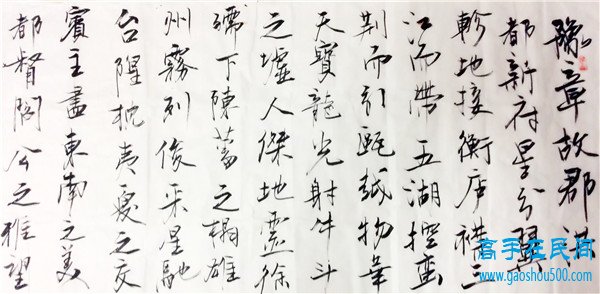 豫章故郡洪
都新府星分翼
軫地接衡庐襟三
江而帶五湖控蛮
荆而引甌越物華
天寶龍光射牛斗
之墟人傑地靈徐
孺下陳蕃之榻雄
州霧列俊采星馳
台隍枕夷夏之交
賓主盡東南之美
都督閻公之雅望
高手在民间
www.gaoshou500.com